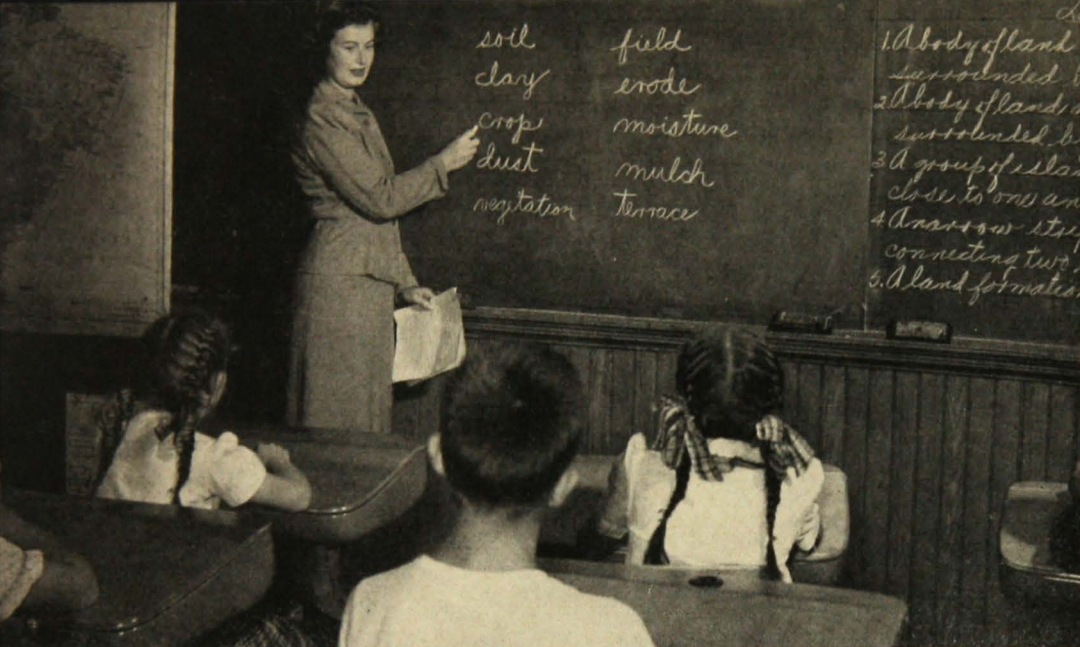 soil
clay
crop
dust
vegitation
field
erode
moisture
mulch
terrace
1. A body of land
surrounded
2. A body of land
surrounded
3. A group of
close to one
4. A narrow
connecting two
5. A land formation